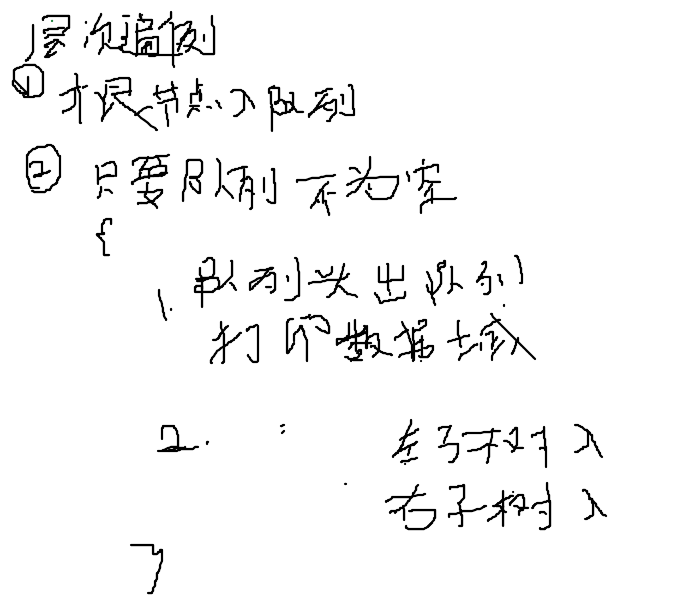 层次遍例
① 根节点入队列
② 只要队列不为空
{
1. 队列头出队列
打印数据域
2. : 左子树入
右子树入
}